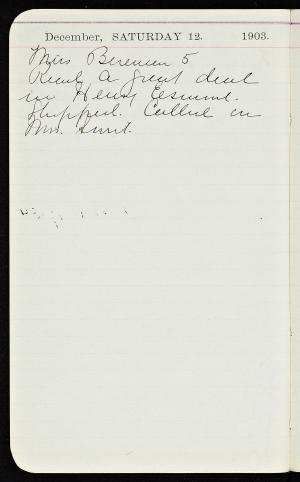 December, SATURDAY 12. 1903.
Miss 5
Read a great deal
in Henry Esmond.
Shopped. Called on
Mrs.